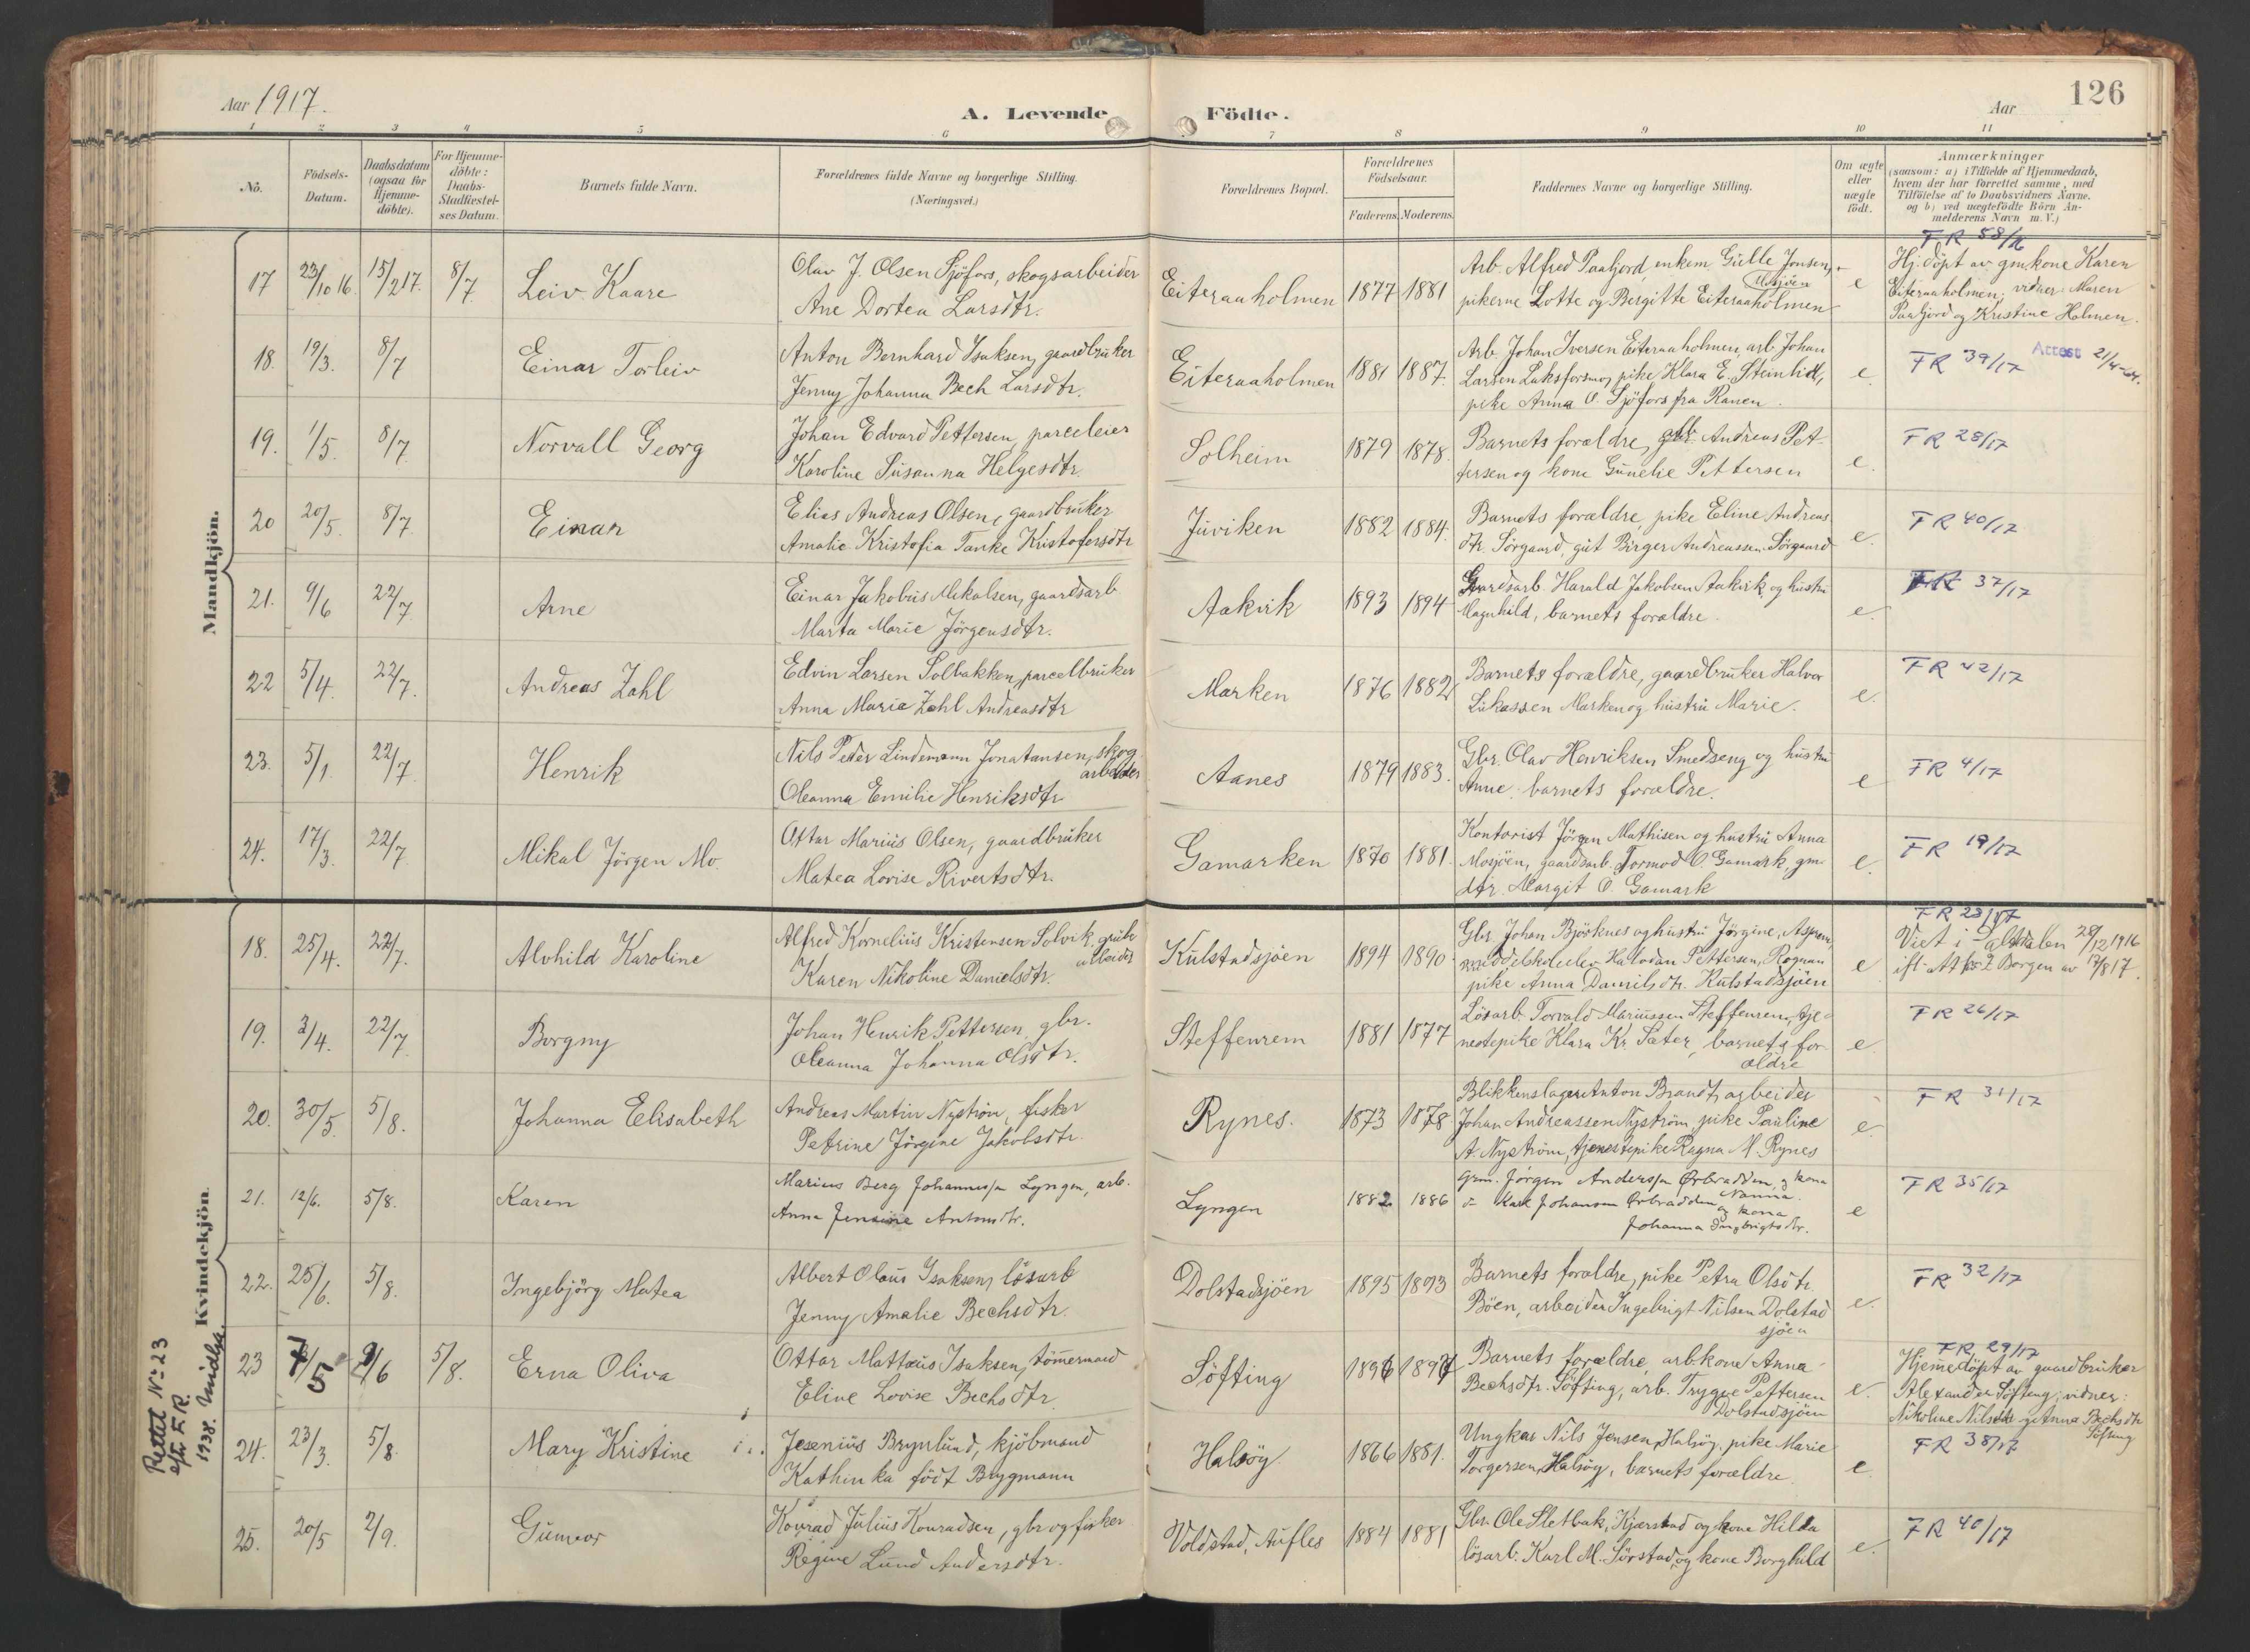 Aar 1917.
A. Levende Födte.
Aar
126
1 2 3 4 5 6 7 8 9 10 11
No.
Födsels-
Datum.
Daabsdatum
(ogsaa for
Hjemme-
döbte).
For Hjemme-
döbte:
Daabs-
Stadfæstel-
ses Datum.
Barnets fulde Navn.
Forældrenes fulde Navne og borgerlige Stilling.
(Næringsvei.)
Forældrenes Bopæl.
Forældrenes
Födselsaar.
Faderens. Moderens.
Faddernes Navne og borgerlige Stilling.
Om ægte
eller
uægte
födt.
Anmærkninger
(saasom: a) i Tilfælde af Hjemmedaab,
hvem der har forrettet samme, med
Tilföielse af to Daabsvidners Navne.
og b) ved uægtefödte Börn An-
melderens Navn m. V.)
Mandkjön.
17 23/10 16. 15/2 17. 8/7 Leiv Kaare
Olav J. Olsen Sjöfors, skogsarbeider
Ane Dortea Larsdtr.
Eiteraaholmen 1877 1881
Arb. Alfred Paafjord, enkem. Gulle Jonsen,
Mosjöen
pikerne Lotte og Bergitte Eiteraaholmen
e
FR 58/16
Hj. döpt av gm.kone Karen
Eiteraaholmen; vidner: Maren
Paafjord og Kristine Holmen.
18. 19/3. 8/7 Einar Torleiv
Anton Bernhard Isaksen, gaardbruker
Jenny Johanna Bech Larsdtr.
Eiteraaholmen 1881 1887.
Arb. Johan Iversen Eiteraaholmen, arb. Johan
Larsen Laksforsmo, pike Klara E. Steinlid,
pike Anna O. Sjöfors fra Ranen.
e.
FR 39/17 Attest 21/4-64.
19. 1/5. 8/7 Norvall Georg
Johan Edvard Pettersen, parceleier
Karoline Susanna Helgesdtr.
Solheim 1879 1878.
Barnets forældre, gbr. Andreas Pet-
tersen og kone Gunelie Pettersen
e.
FR 28/17
20 20/5. 8/7 Einar
Elias Andreas Olsen, gaardbruker
Amalie Kristofia Tanke Kristofersdtr
Juviken 1882 1884.
Barnets forældre, pike Eline Andreas
dtr. Sörgaard, gut Birger Andreassen Sörgaard
e.
FR 40/17
21. 9/6 22/7 Arne
Einar Jakobus Mikalsen, gaardsarb
Marta Marie Jörgensdtr.
Aakvik 1893 1894
Gaardsarb. Harald Jakobsen Aakvik og hustru
Magnhild, barnets forældre.
e.
FR 37/17
22 5/4. 22/7. Andreas Zahl
Edvin Larsen Solbakken, parcelbruker
Anna Marie Zahl Andreasdtr
Marken 1876 1882
Barnets forældre, gaardbruker Halvor
Lukassen Marken og hustru Marie.
e.
FR 42/17
23. 5/1. 22/7 Henrik
Nils Peder Lindemann Jonatansen, skog
arbeider
Oleanna Emilie Henriksdtr
Aanes 1879 1883.
Gbr. Olav Henriksen Smedseng og hustru
Anne, barnets forældre.
e
FR 4/17
24. 17/3. 22/7 Mikal Jörgen Mo.
Ottar Marius Olsen, gaardbruker
Matea Lovise Rivertsdtr.
Gamarken 1870 1881.
Kontorist Jörgen Mathisen og hustru Anna
Mosjöen, gaardsarb. Tormod O Gamark, gm
dtr. Margit O. Gamark
e.
FR 19/17
Kvindekjön.
18. 25/4. 22/7. Alvhild Karoline
Alfred Kornelius Kristensen Solvik, grube
arbeider
Karen Nikoline Danielsdtr.
Kulstadsjöen 1894 1890
Gbr. Johan Björknes og hustru Jörgine,
middelskoleelev Halvdan Pettersen, Rognan
pike Anna Danielsdtr. Kulstadsjöen
e
FR 23/17
Viet i Saltdalen 28/12 1916
ifl. Att fra Borgen av 17/8 17.
19. 3/4. 22/7 Borgny
Johan Henrik Pettersen, gbr.
Oleanna Johanna Olsdtr.
Steffenrem 1881 1877
Lösarb. Torvald Mariussen Steffenrem, tje-
nestepike Klara Kr. Sæter, barnets for-
ældre
e.
FR 26/17
20. 30/5. 5/8. Johanna Elisabeth
Andreas Martin Nyström, fisker
Petrine Jörgine Jakobsdtr.
Rynes. 1873 1878
Blikkenslager Anton Brandt, arbeider
Johan Andreassen Nyström, pike Pauline
A. Nyström, tjenestepike Ragna M. Rynes
e.
FR 31/17
21. 12/6. 5/8. Karen
Marius Berg Johannessen Lyngen, arb.
Anna Jensine Antonsdtr.
Lyngen 1882 1886
Gm. Jörgen Anderssen Ørbradden, og kona
Nanna.
Karl Johansen Ørbradden og kona
Johanna Ingbrigtsdtr.
e
FR 35/17
22. 25/6. 5/8. Ingebjörg Matea
Albert Olaus Isaksen, lösarb
Jenny Amalie Bechsdtr.
Dolstadsjöen 1895 1893
Barnets forældre, pike Petra Olsdtr.
Böen, arbeider Ingebrigt Nilsen Dolstad
sjöen
e.
FR 32/17
23 7/5 9/6 5/8. Erna Oliva
Ottar Mattæus Isaksen, tömmermand
Eline Lovise Bechsdtr.
Söfting 1896 1894
Barnets forældre, arbkone Anna
Bechsdtr. Söfting, arb. Trygve Pettersen
Dolstadsjöen
e.
FR. 29/17
Hjemedöpt av gaardbruker
Alexander Söfting; vidner:
Nikoline Nilsdtr og Anna Bechsdtr
Söfting
Rettet No 23
eft. F.R.
1938.
24. 23/3. 5/8 Mary Kristine
Jesenius Brynlund, kjöbmand
Kathinka födt Brygmann
Halsöy 1866 1881.
Ungkar Nils Jensen, Halsöy, pike Marie
Torgersen, Halsöy, barnets forældre
e.
FR 38/17
25. 20/5 2/9. Gunvor
Konrad Julius Konradsen, gbr og fisker
Regine Lund Andersdtr.
Voldstad, Aufles 1884 1881
Gbr. Ole Sletbak, Kjærstad og kone Hilda
lösarb. Karl M. Sörstad, og kone Borghild
e.
FR 40/17